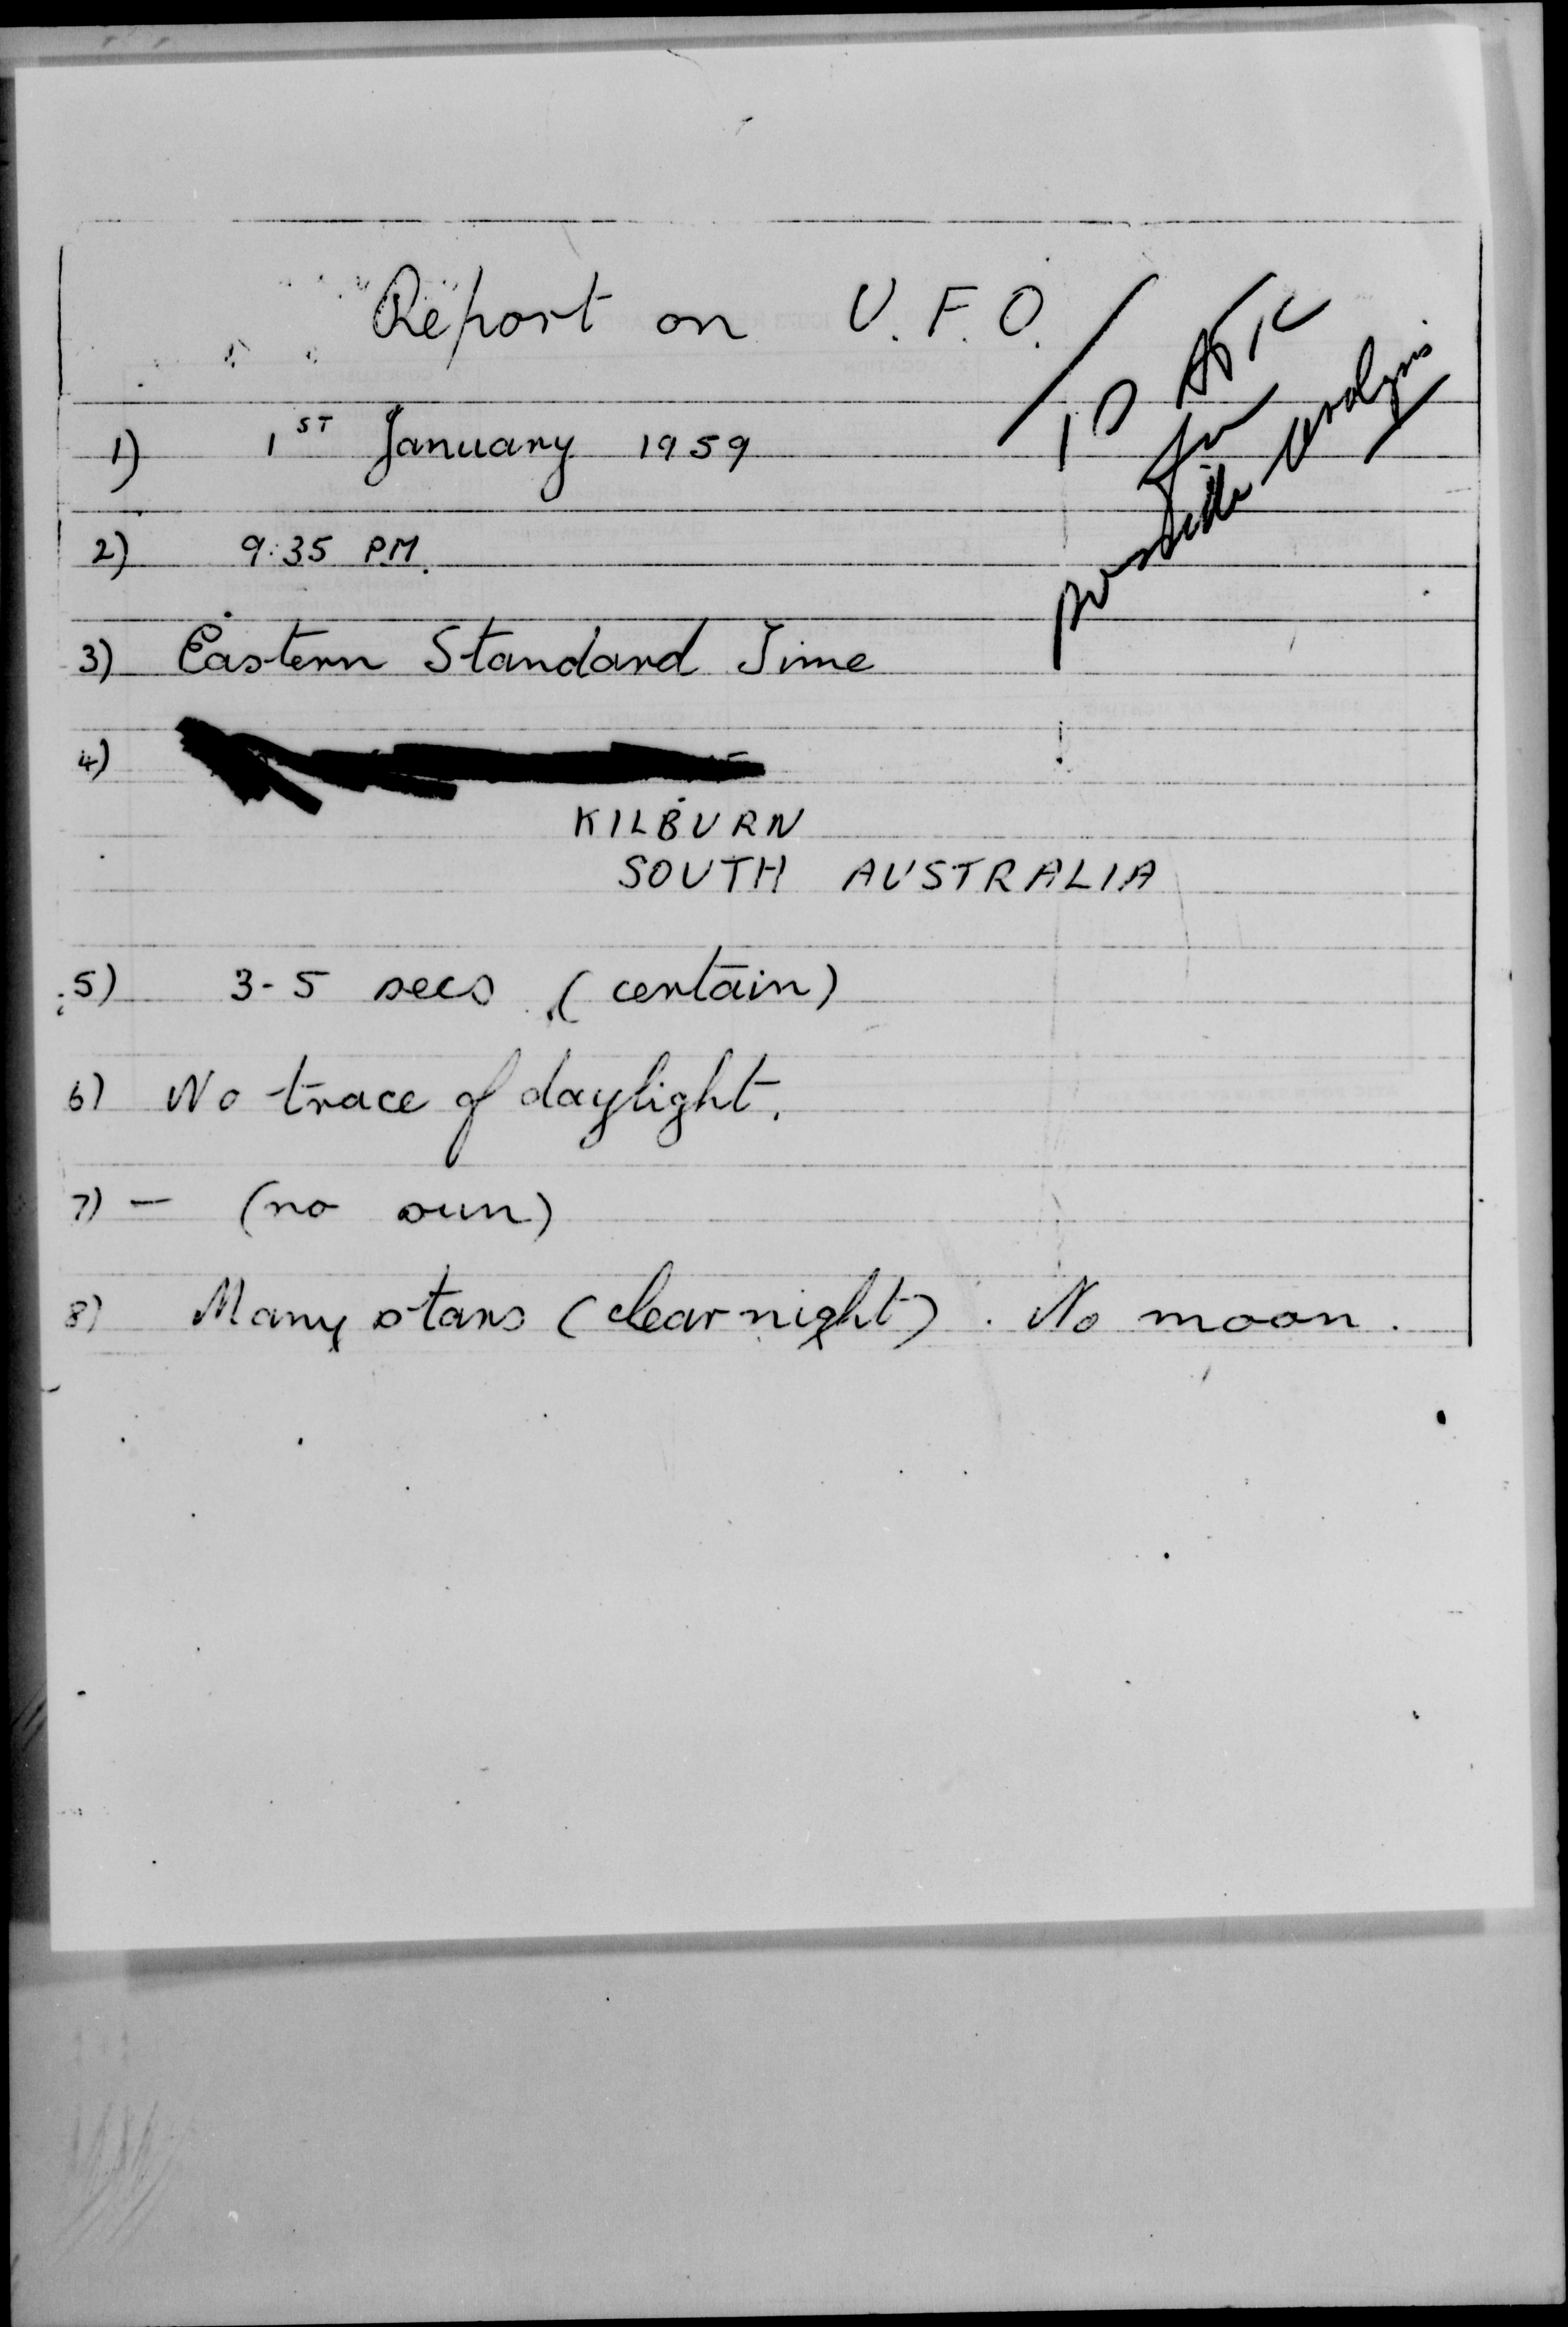 Report on U.F.O.
TO ATIC
for
possible analysis
1) 1ST January 1959
2) 9:35 P.M.
3) Eastern Standard Time
4)
KILBURN
SOUTH AUSTRALIA
5) 3-5 secs (certain)
6) No trace of daylight.
7) — (no sun)
8) Many stars (clear night). No moon.